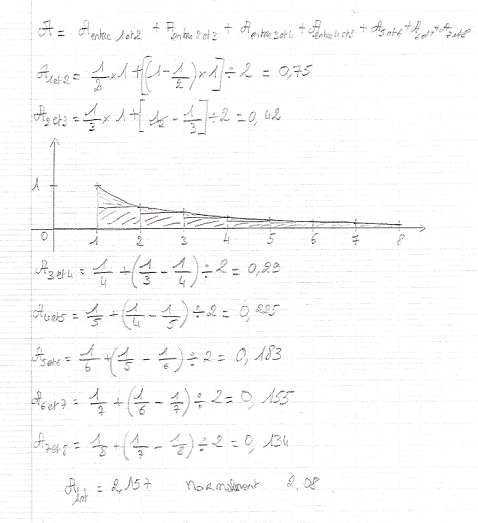 A = A entre 1 et 2 + A entre 2 et 3 + A entre 3 et 4 + A entre 4 et 5 + A 5 et 6 + A 6 et 7 + A 7 et 8
A 1 et 2 = 1/2 × 1 + [(1 - 1/2) × 1] ÷ 2 = 0,75
A 2 et 3 = 1/3 × 1 + [1/2 - 1/3] ÷ 2 = 0,42
1
0 1 2 3 4 5 6 7 8
A 3 et 4 = 1/4 + (1/3 - 1/4) ÷ 2 = 0,29
A 4 et 5 = 1/5 + (1/4 - 1/5) ÷ 2 = 0,225
A 5 et 6 = 1/6 + (1/5 - 1/6) ÷ 2 = 0,183
A 6 et 7 = 1/7 + (1/6 - 1/7) ÷ 2 = 0,155
A 7 et 8 = 1/8 + (1/7 - 1/8) ÷ 2 = 0,134
A tot = 2,157 normalement 2,08